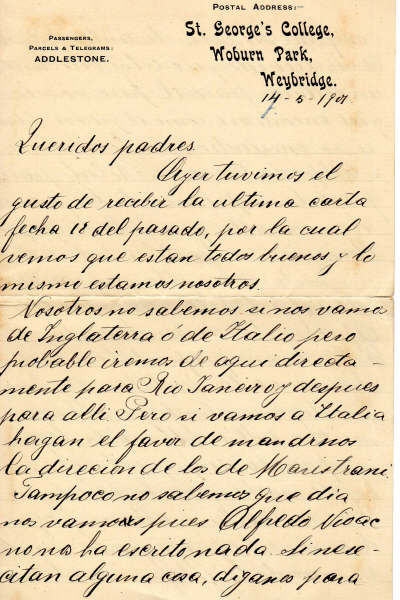 POSTAL ADDRESS:-
St. George's College,
Woburn Park,
Weybridge.
PASSENGERS,
PARCELS & TELEGRAMS:
ADDLESTONE.
14-5-1901
Queridos padres
Ayer tuvimos el
gusto de recibir la ultima carta
fecha 18 del pasado, por la cual
vemos que estan todos buenos y lo
mismo estamos nosotros.
Nosotros no sabemos si nos vamos
de Inglaterra ó de Italio pero
probable iremos de aqui directa-
mente para Rio Janeiro y despues
para alli. Pero si vamos a Italia
hagan el favor de mandrnos
la direcion de los de Maristrani.
Tampoco no sabemos que dia
nos vamos pues Alfredo
no na ha escrito nada. Si nese-
citan alguna cosa, diganos para